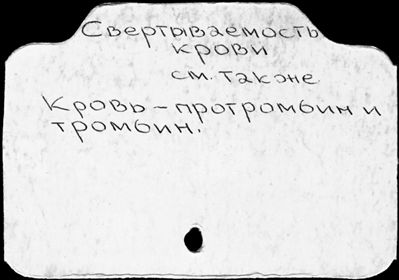 Свертываемость
крови
см. также.
Кровь – протромбин и
тромбин.